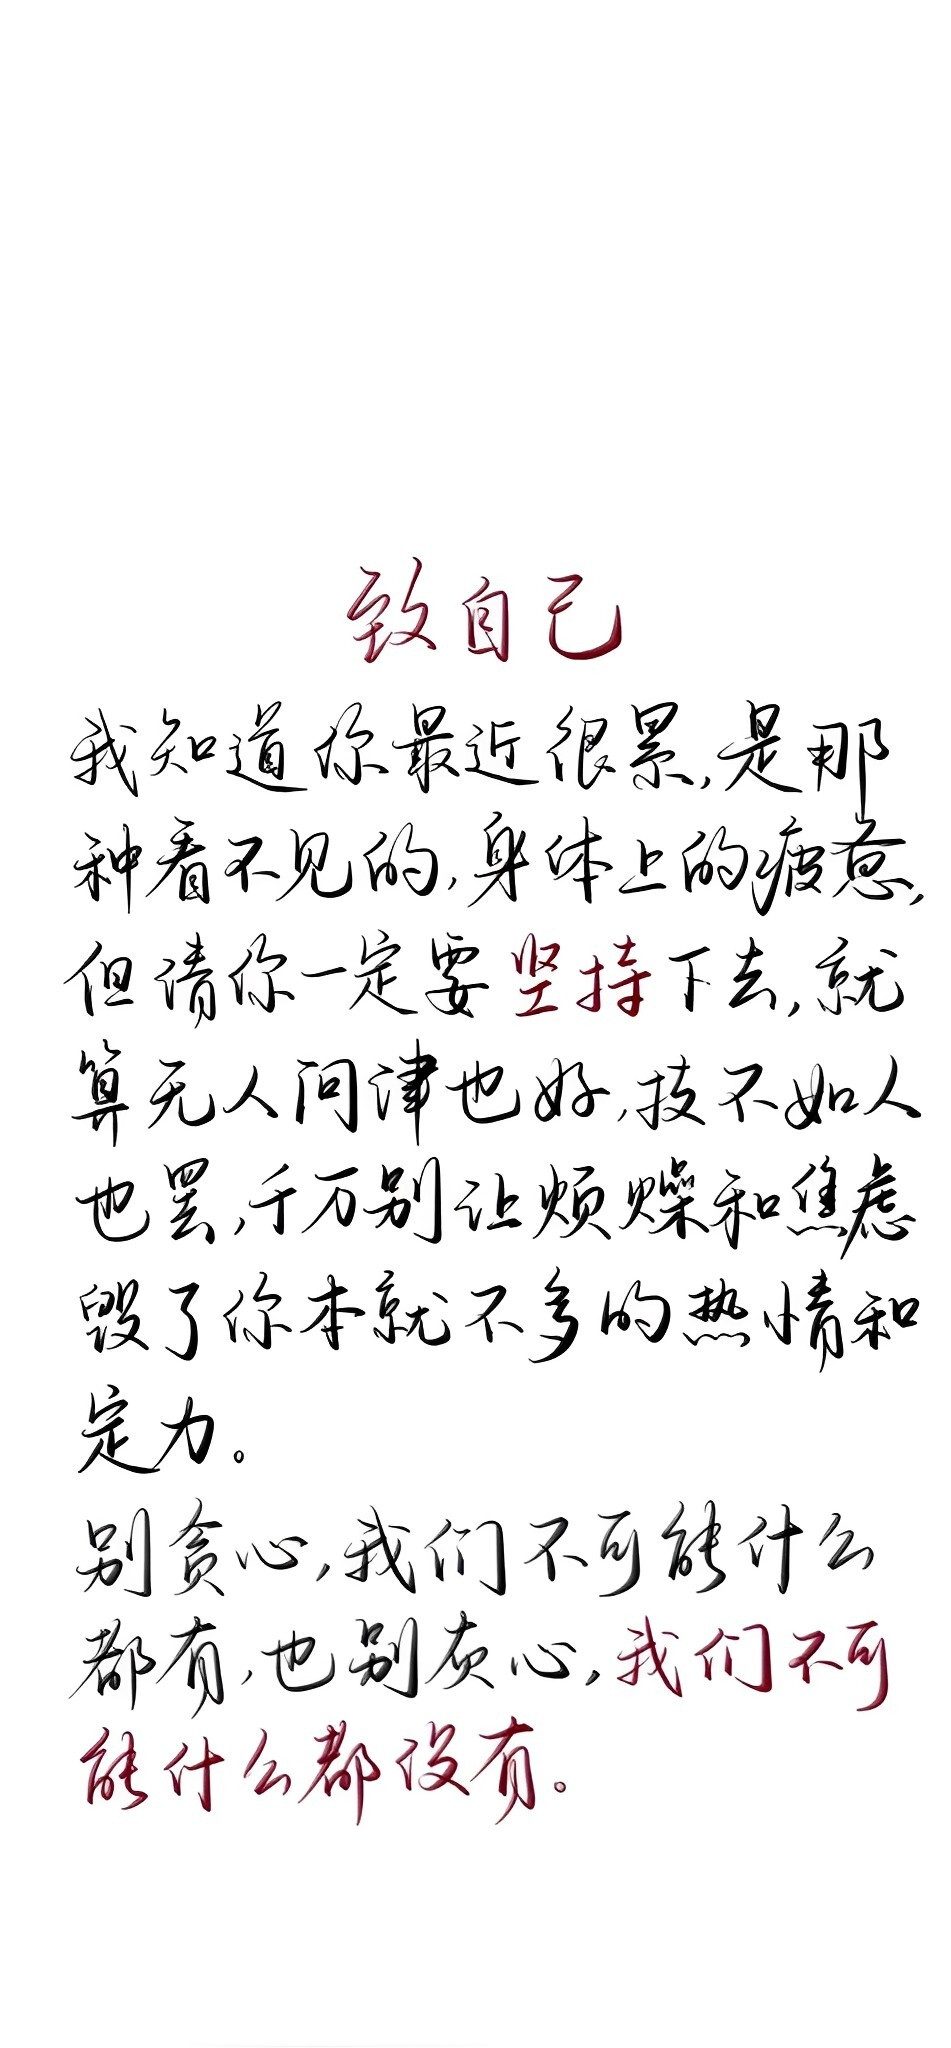 致自己
我知道你最近很累,是那
种看不见的,身体上的疲惫,
但请你一定要坚持下去,就
算无人问津也好,技不如人
也罢,千万别让烦躁和焦虑
毁了你本就不多的热情和
定力。
别贪心,我们不可能什么
都有,也别灰心,我们不可
能什么都没有。